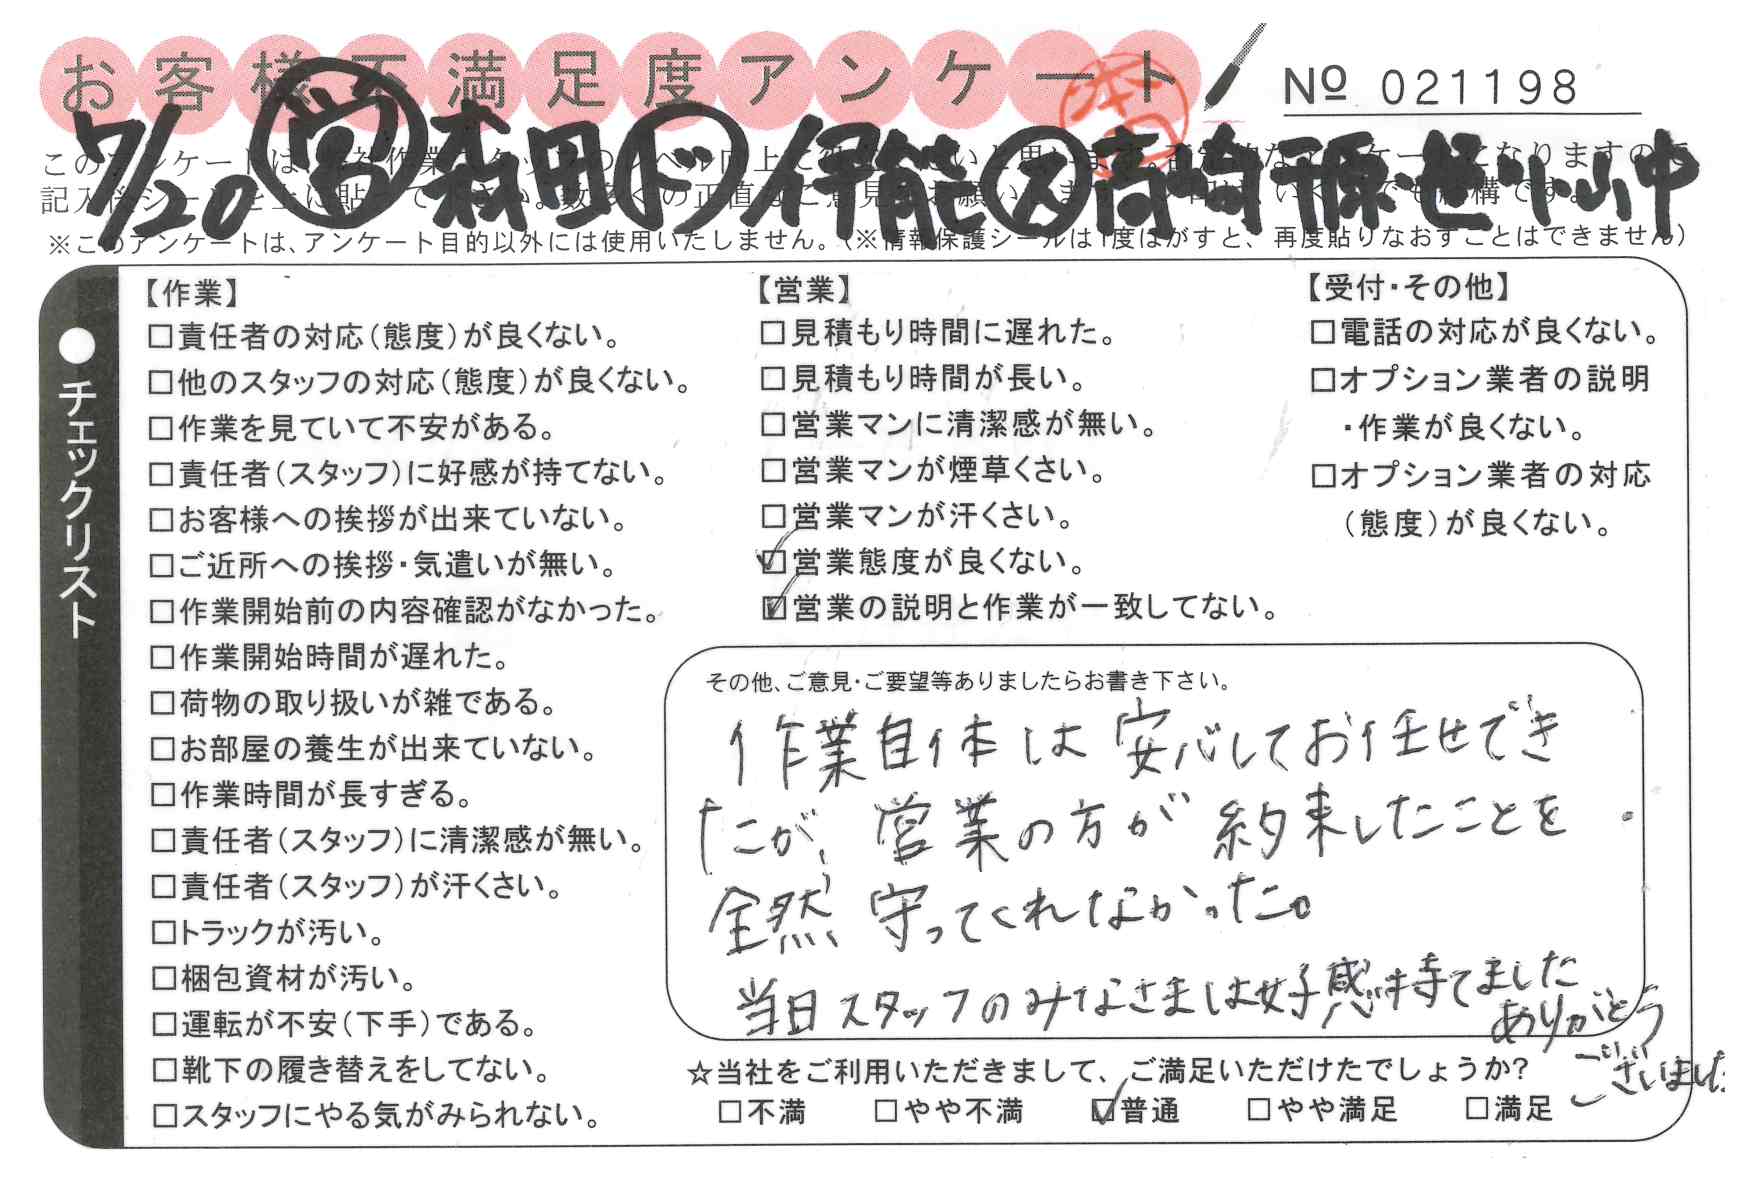 お客様不満足度アンケート
№ 021198
7/20 営 森田 ド 伊能 ス 高崎
※このアンケートは、アンケート目的以外には使用いたしません。(※情報保護シールは1度はがすと、再度貼りなおすことはできません)
●チェックリスト
【作業】
□責任者の対応(態度)が良くない。
□他のスタッフの対応(態度)が良くない。
□作業を見ていて不安がある。
□責任者(スタッフ)に好感が持てない。
□お客様への挨拶が出来ていない。
□ご近所への挨拶・気遣いが無い。
□作業開始前の内容確認がなかった。
□作業開始時間が遅れた。
□荷物の取り扱いが雑である。
□お部屋の養生が出来ていない。
□作業時間が長すぎる。
□責任者(スタッフ)に清潔感が無い。
□責任者(スタッフ)が汗くさい。
□トラックが汚い。
□梱包資材が汚い。
□運転が不安(下手)である。
□靴下の履き替えをしてない。
□スタッフにやる気がみられない。
【営業】
□見積もり時間に遅れた。
□見積もり時間が長い。
□営業マンに清潔感が無い。
□営業マンが煙草くさい。
□営業マンが汗くさい。
☑営業態度が良くない。
☑営業の説明と作業が一致してない。
【受付・その他】
□電話の対応が良くない。
□オプション業者の説明
・作業が良くない。
□オプション業者の対応
(態度)が良くない。
その他、ご意見・ご要望等ありましたらお書き下さい。
作業自体は安心してお任せでき
たが、営業の方が約束したことを
全然守ってくれなかった。
当日スタッフのみなさまは好感持てました
ありがとう
ございました
☆当社をご利用いただきまして、ご満足いただけたでしょうか?
□不満 □やや不満 ☑普通 □やや満足 □満足